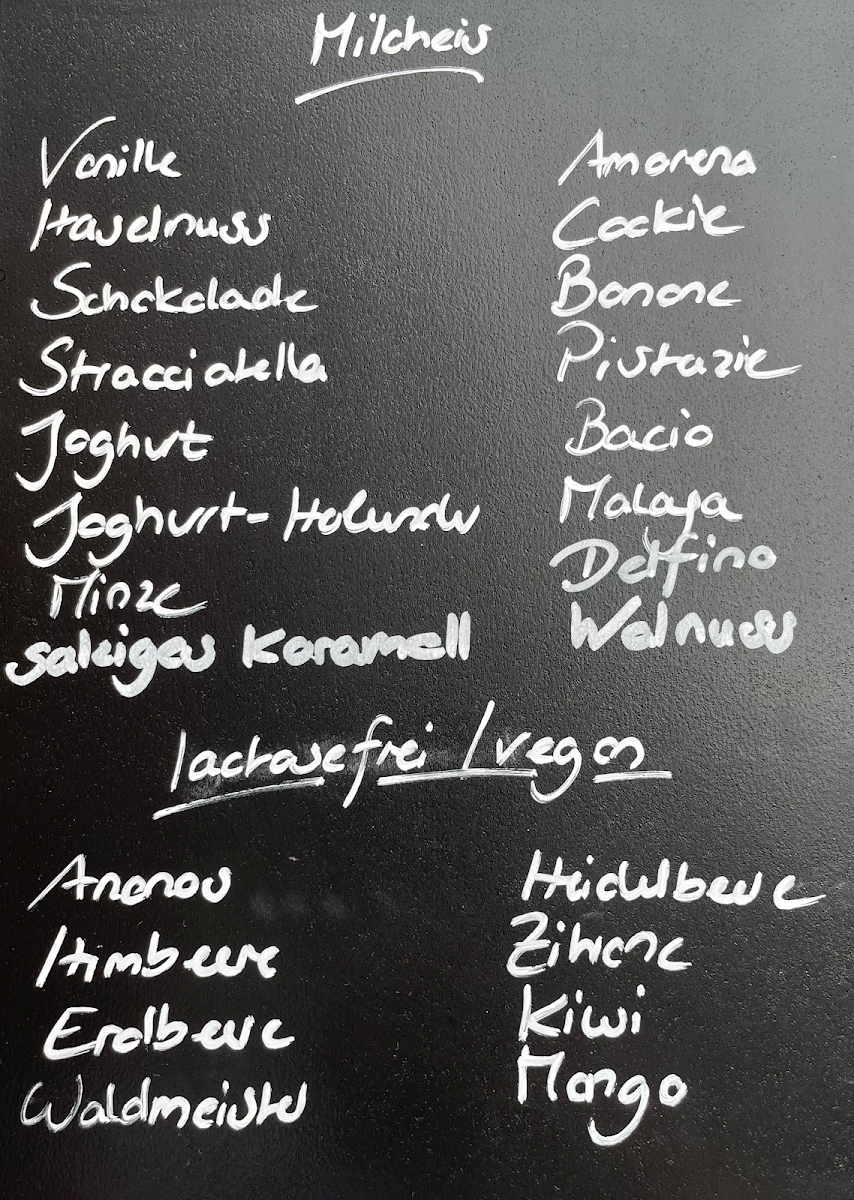 Milcheis
Vanille
Haselnuss
Schokolade
Stracciatella
Joghurt
Joghurt-Holunder
Minze
salziges Karamell
Amarena
Cookie
Banane
Pistazie
Bacio
Malaga
Delfino
Walnuss
lactosefrei / vegan
Ananas
Himbeere
Erdbeere
Waldmeister
Heidelbeere
Zitrone
Kiwi
Mango